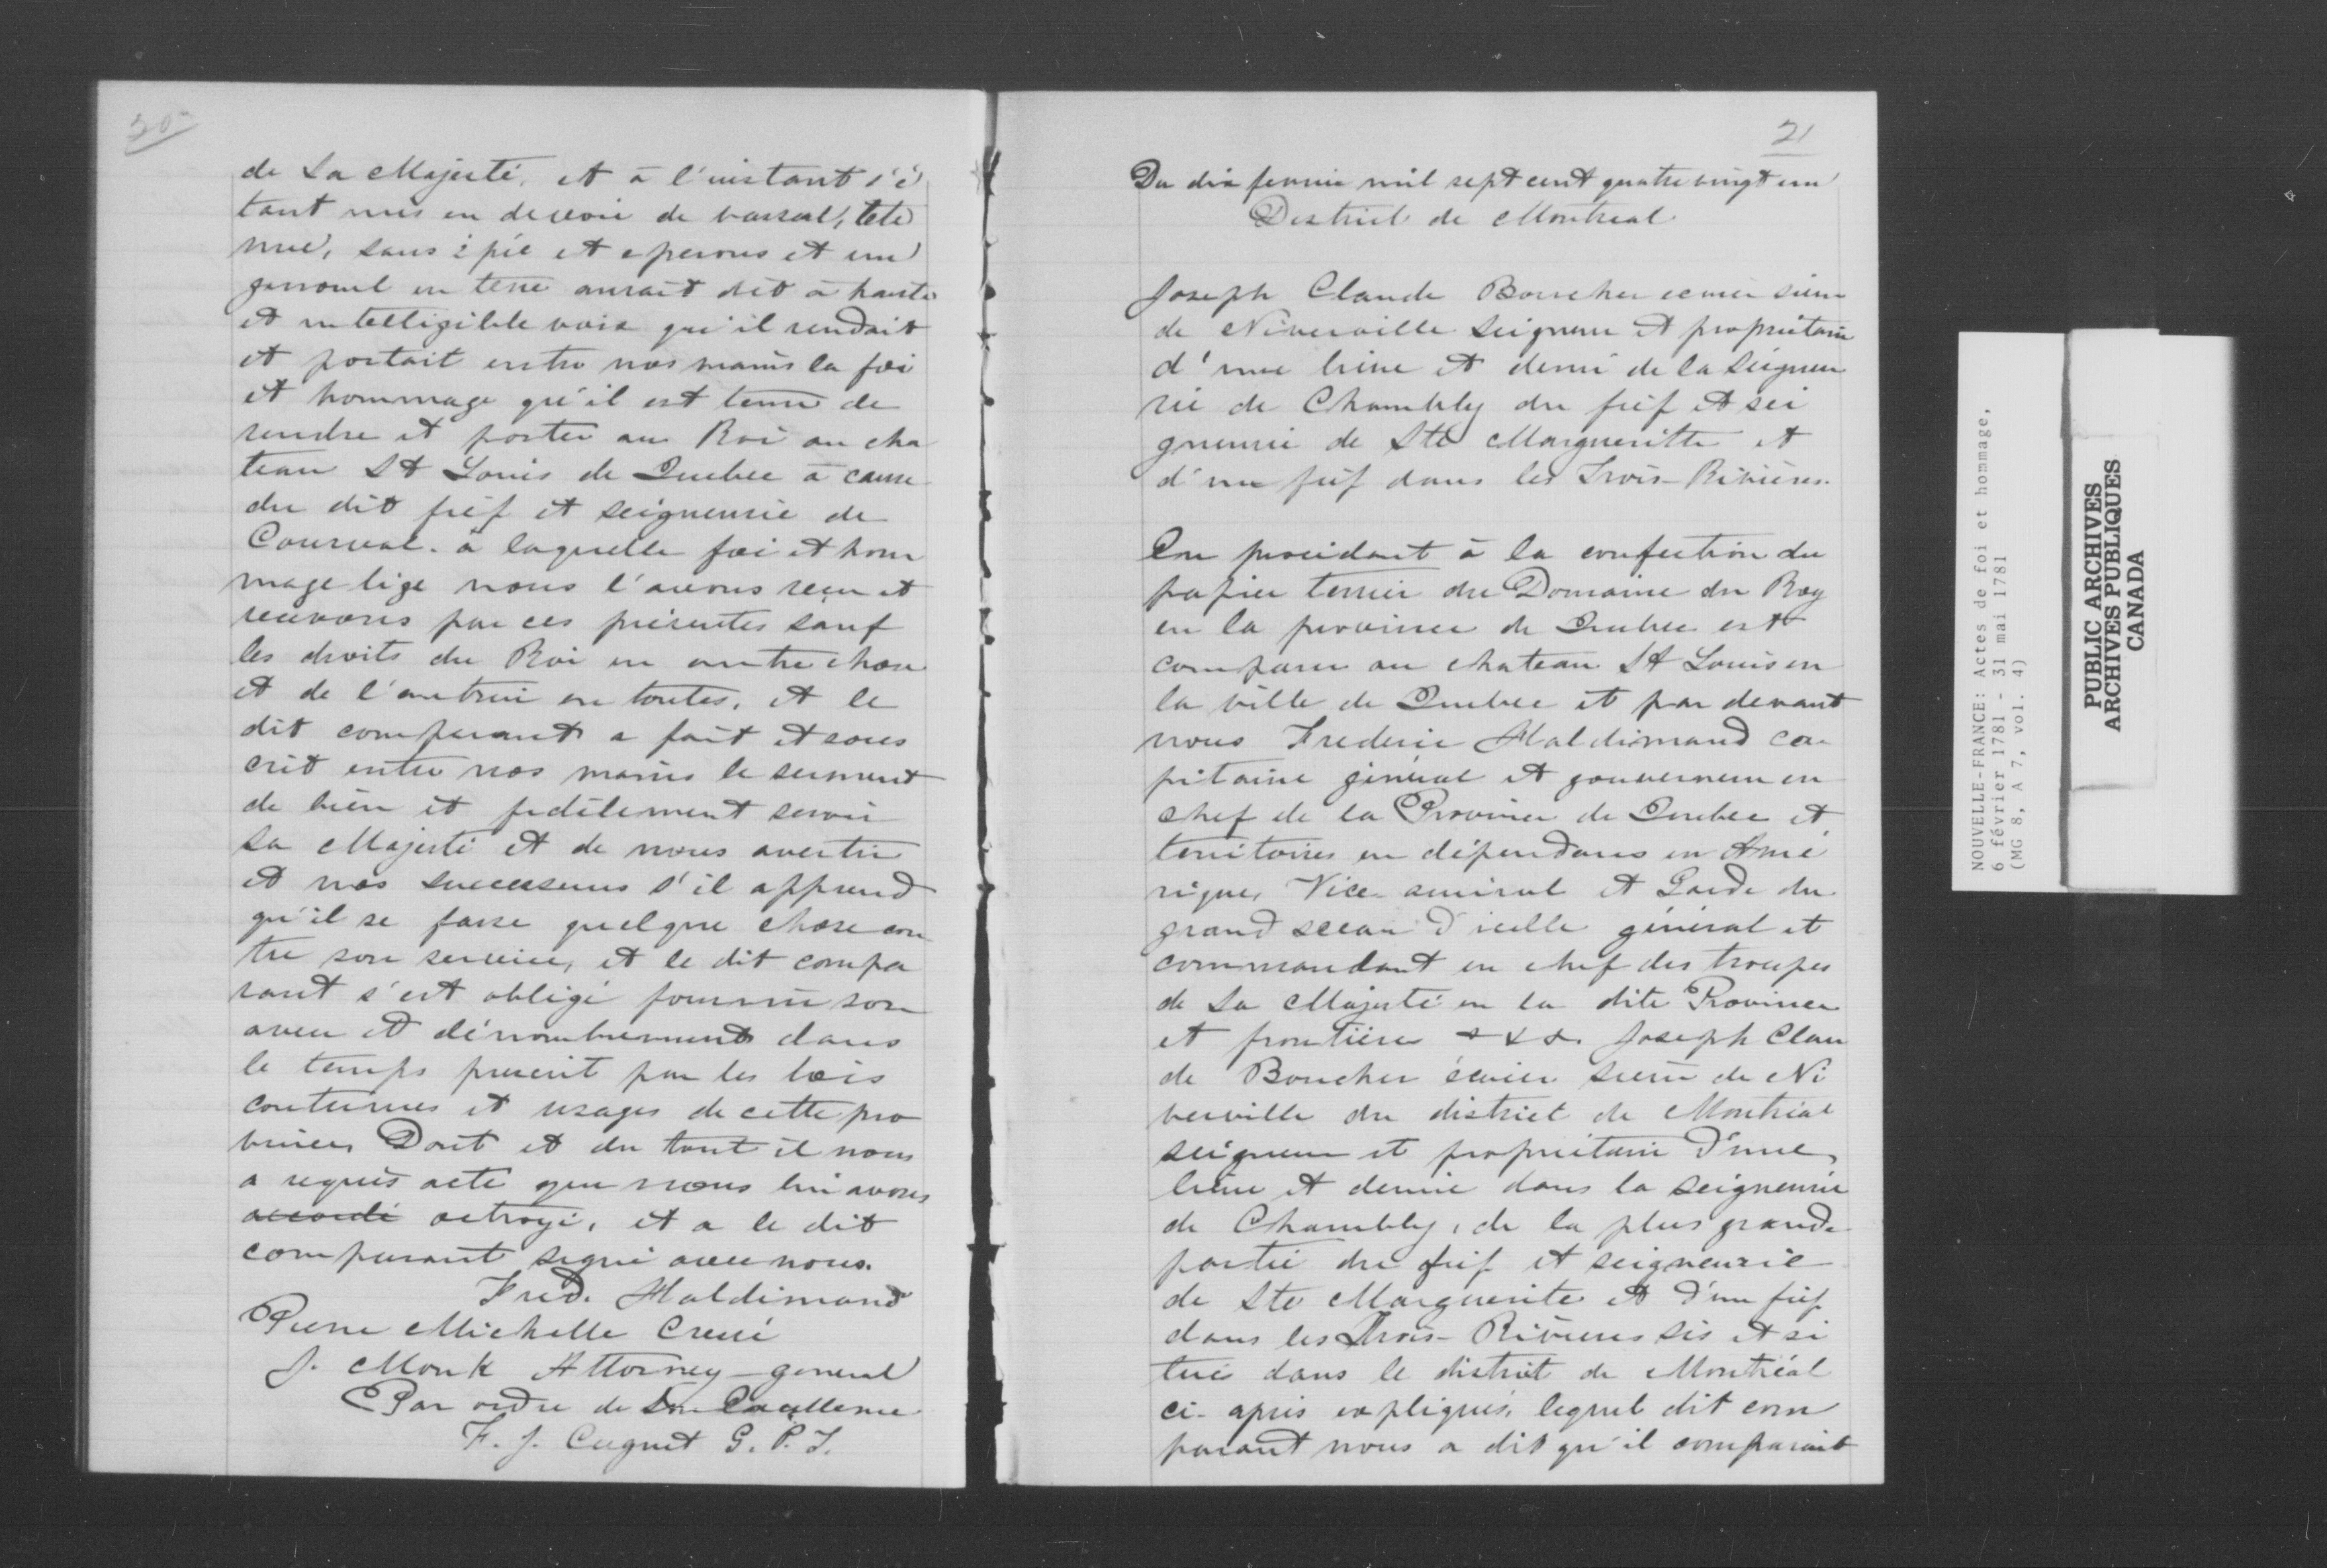 20
de Sa Majesté, et à l'instant s'é
tant mis en devoir de vassal, tete
nue, sans épée et eperons et un
genouil en terre aurait dit à haute
et intelligible voix qu'il rendait
et portait entre nos mains la foi
et hommage qu'il est tenu de
rendre et porter au Roi au cha
teau St Louis de Quebec à cause
du dit fief et seigneurie de
Courval. à laquelle foi et hom
mage lige nous l'avons reçu et
recevons par ces présentes sauf
les droits du Roi en autre chose
et de l'autrui en toutes, et le
dit comparant a fait et sous
crit entre nos mains le serment
de bien et fidèlement servir
sa Majesté et de nous avertir
et nos successeurs s'il apprend
qu'il se fasse quelque chose con
tre son service, et le dit compa
rant s'est obligé fournir son
aveu et dénombrement dans
le temps prescrit par les lois
coutumes et usages de cette pro
vince, Dont et du tout il nous
a requis acte que nous lui avons
accordé octroyé, et a le dit
comparant signé avec nous.
Fred. Haldimand
Pierre Michelle Cressé
J. Monk Attorney-general
Par ordre de Son Excellence
F. J. Cugnet G. P. T.
21
Du dix fevrier mil sept cent quatre vingt un
District de Montreal
Joseph Claude Boucher ecuier sieur
de Niverville Seigneur et proprietaire
d'une lieue et demi de la Seigneu
rie de Chambly du fief et sei
gneurie de Ste Margueritte et
d'un fief dans les Trois-Rivières.
En procédant à la confection du
papier terrier du Domaine du Roy
en la province de Quebec est
comparu au chateau St Louis en
la ville de Quebec et par devant
nous Frederic Haldimand ca
pitaine général et gouverneur en
chef de la Province de Quebec et
territoires en dépendans en Amé
rique, Vice-amiral et Garde du
grand sceau d'icelle général et
commandant en chef des troupes
de Sa Majesté en la dite Province
et frontières &&&. Joseph Clau
de Boucher écuier sieur de Ni
verville du district de Montréal
seigneur et proprietaire d'une
lieue et demie dans la Seigneurie
de Chambly, de la plus grande
partie du fief et seigneurie
de Ste Marguerite et d'un fief
dans les Trois-Rivieres sis et si
tué dans le district de Montréal
ci-après expliqués, lequel dit com
parant nous a dit qu'il comparait
NOUVELLE-FRANCE: Actes de foi et hommage,
6 février 1781 - 31 mai 1781
(MG 8, A 7, vol. 4)
PUBLIC ARCHIVES
ARCHIVES PUBLIQUES
CANADA